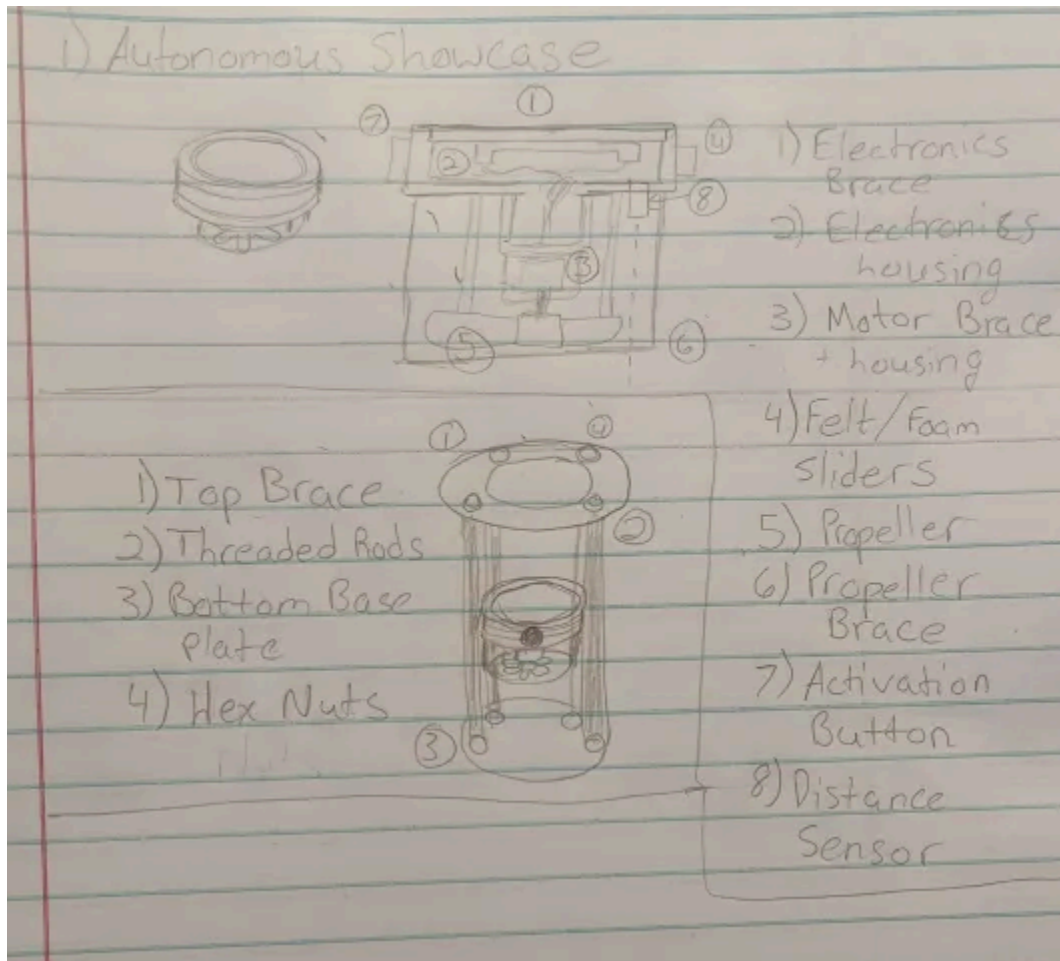 1) Autonomous Showcase
①
⑦
②
④
⑧
③
⑤
⑥
1) Electronics
Brace
2) Electronics
housing
3) Motor Brace
+ housing
4) Felt/Foam
Sliders
5) Propeller
6) Propeller
Brace
7) Activation
Button
8) Distance
Sensor
①
④
②
③
1) Top Brace
2) Threaded Rods
3) Bottom Base
Plate
4) Hex Nuts